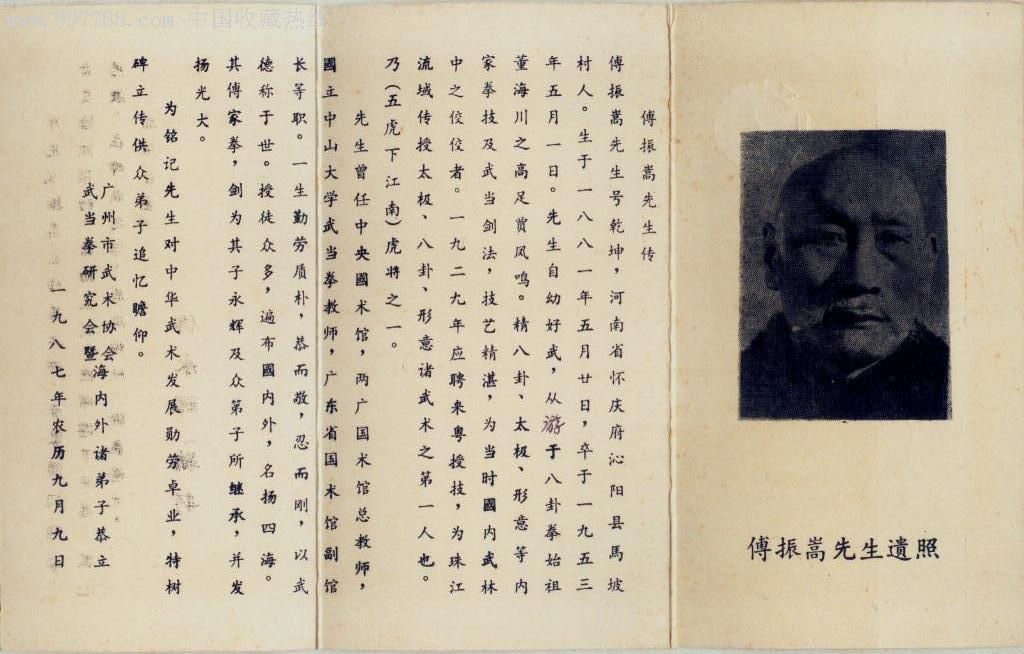 www.997788.com 中国收藏热线
傅振嵩先生遺照
傅振嵩先生传
傅振嵩先生号乾坤，河南省怀庆府沁阳县馬坡
村人。生于一八八一年五月廿日，卒于一九五三
年五月一日。先生自幼好武，从游于八卦拳始祖
董海川之高足贾凤鸣。精八卦、太极、形意等内
家拳技及武当剑法，技艺精湛，为当时國内武林
中之佼佼者。一九二九年应聘来粤授技，为珠江
流域传授太极、八卦、形意诸武术之第一人也。
乃(五虎下江南)虎将之一。
先生曾任中央國术馆，两广国术馆总教师，
國立中山大学武当拳教师，广东省国术馆副馆
长等职。一生勤劳质朴，恭而敬，忍而刚，以武
德称于世。授徒众多，遍布國内外，名扬四海。
其傅家拳，剑为其子永辉及众第子所继承，并发
扬光大。
为铭记先生对中华武术发展勋劳卓业，特树
碑立传供众弟子追忆瞻仰。
广州市武术协会
武当拳研究会暨
海内外诸弟子恭立
一九八七年农历九月九日